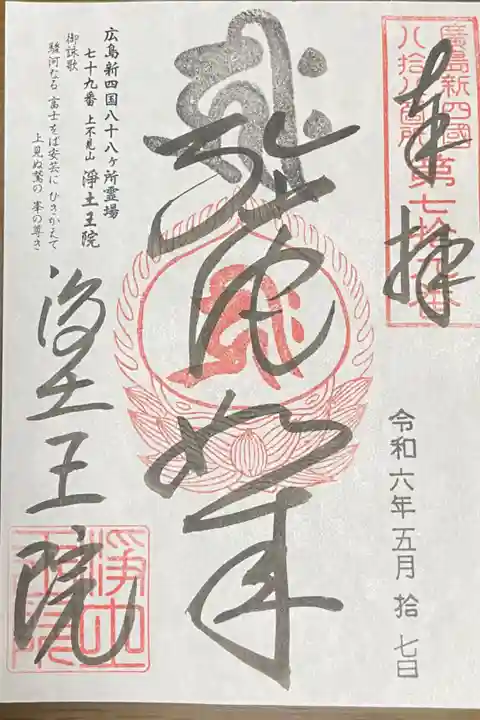 廣島新四國
八拾八箇所
第七拾九番
奉拝
令和六年五月拾七日
弥陀如来
広島新四国八十八ヶ所霊場
七十九番 上不見山 淨土王院
御詠歌
駿河なる 富士をば安芸に ひきかえて
上見ぬ鷲の 峯の尊き
浄土王院